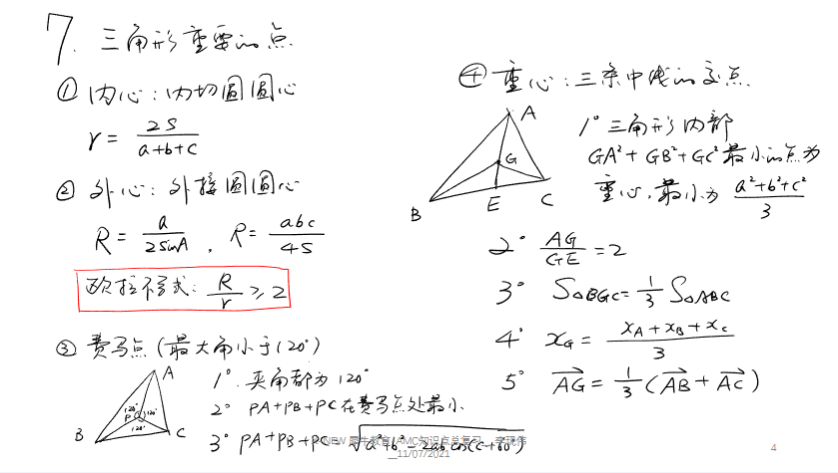 7. 三角形重要的点
① 内心：内切圆圆心
r = 2S/(a+b+c)
② 外心：外接圆圆心
R = a/(2sinA) , R = abc/(4S)
欧拉不等式: R/r ≥ 2
③ 费马点 (最大角小于120°)
A
B
C
P
120°
120°
120°
1° 夹角都为120°
2° PA+PB+PC在费马点处最小
3° PA+PB+PC = √(a²+b²-2ab cos(C+60°))
④ 重心：三条中线的交点
A
G
B
E
C
1° 三角形内部
GA²+GB²+GC²最小的点为
重心，最小为 (a²+b²+c²)/3
2° AG/GE = 2
3° S△BGC = 1/3 S△ABC
4° x_G = (x_A+x_B+x_C)/3
5° AG→ = 1/3(AB→+AC→)
11/07/2021
4